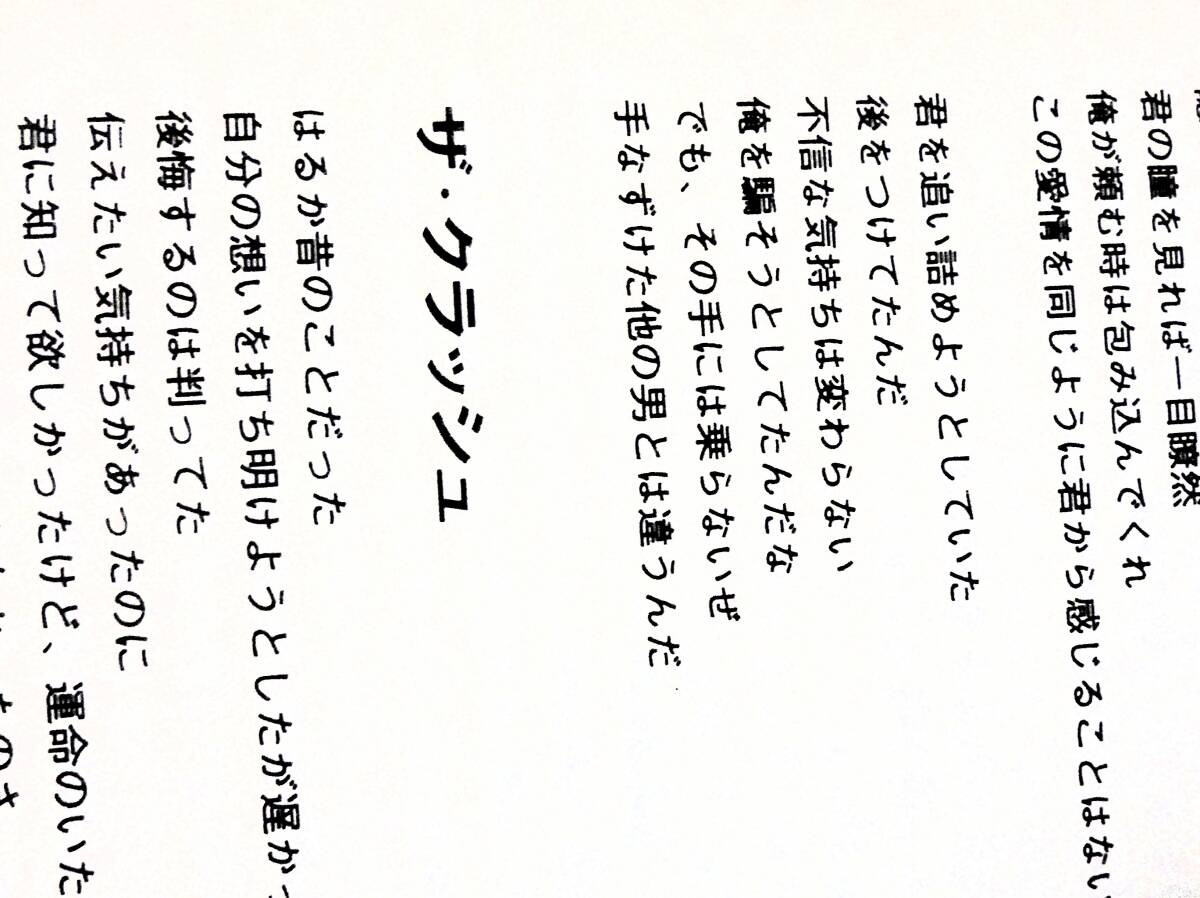 君の瞳を見れば一目瞭然
俺が頼む時は包み込んでくれ
この愛情を同じように君から感じることはない
君を追い詰めようとしていた
後をつけてたんだ
不信な気持ちは変わらない
俺を騙そうとしてたんだな
でも、その手には乗らないぜ
手なずけた他の男とは違うんだ
ザ・クラッシュ
はるか昔のことだった
自分の想いを打ち明けようとしたが遅かっ
後悔するのは判ってた
伝えたい気持ちがあったのに
君に知って欲しかったけど、運命のいた